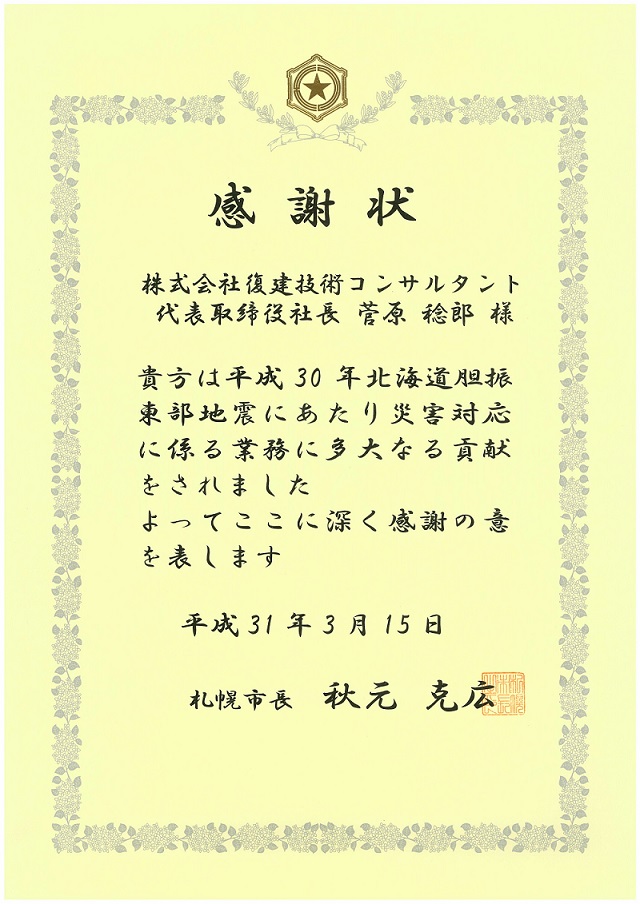 感謝状
株式会社復建技術コンサルタント
代表取締役社長 菅原 稔郎 様
貴方は平成30年北海道胆振
東部地震にあたり災害対応
に係る業務に多大なる貢献
をされました
よってここに深く感謝の意
を表します
平成31年3月15日
札幌市長 秋元 克広